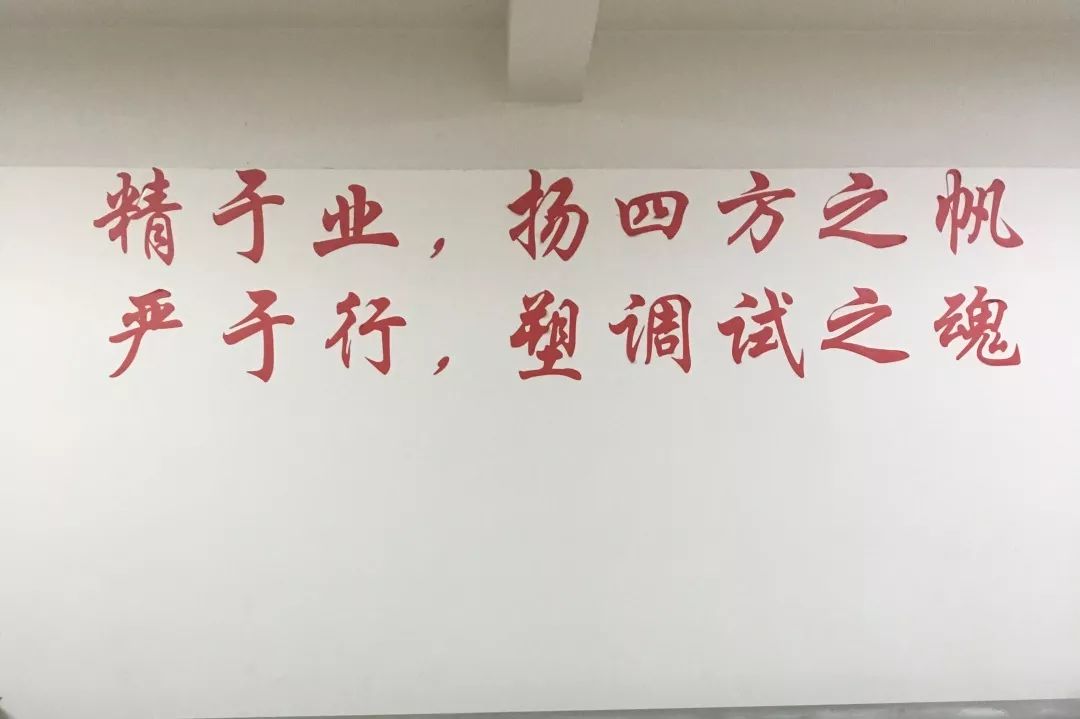 精于业，扬四方之帆
严于行，塑调试之魂